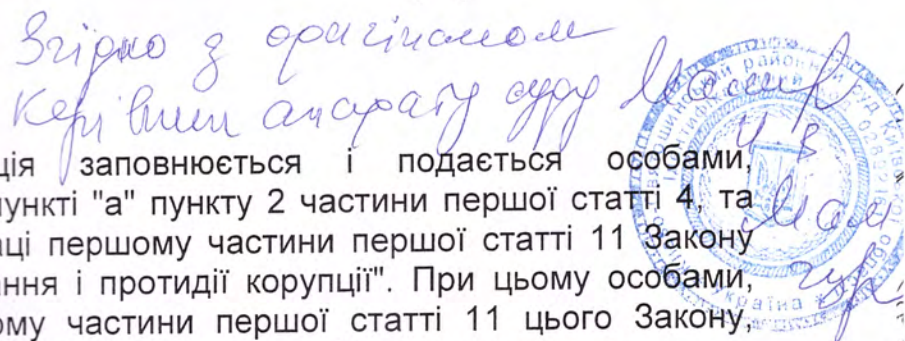 Згідно з оригіналом
Керівник апарату суду
ція заповнюється і подається особами,
пункті "а" пункту 2 частини першої статті 4, та
аці першому частини першої статті 11 Закону
ання і протидії корупції". При цьому особами,
ому частини першої статті 11 цього Закону,
районний суд Київс
Україна